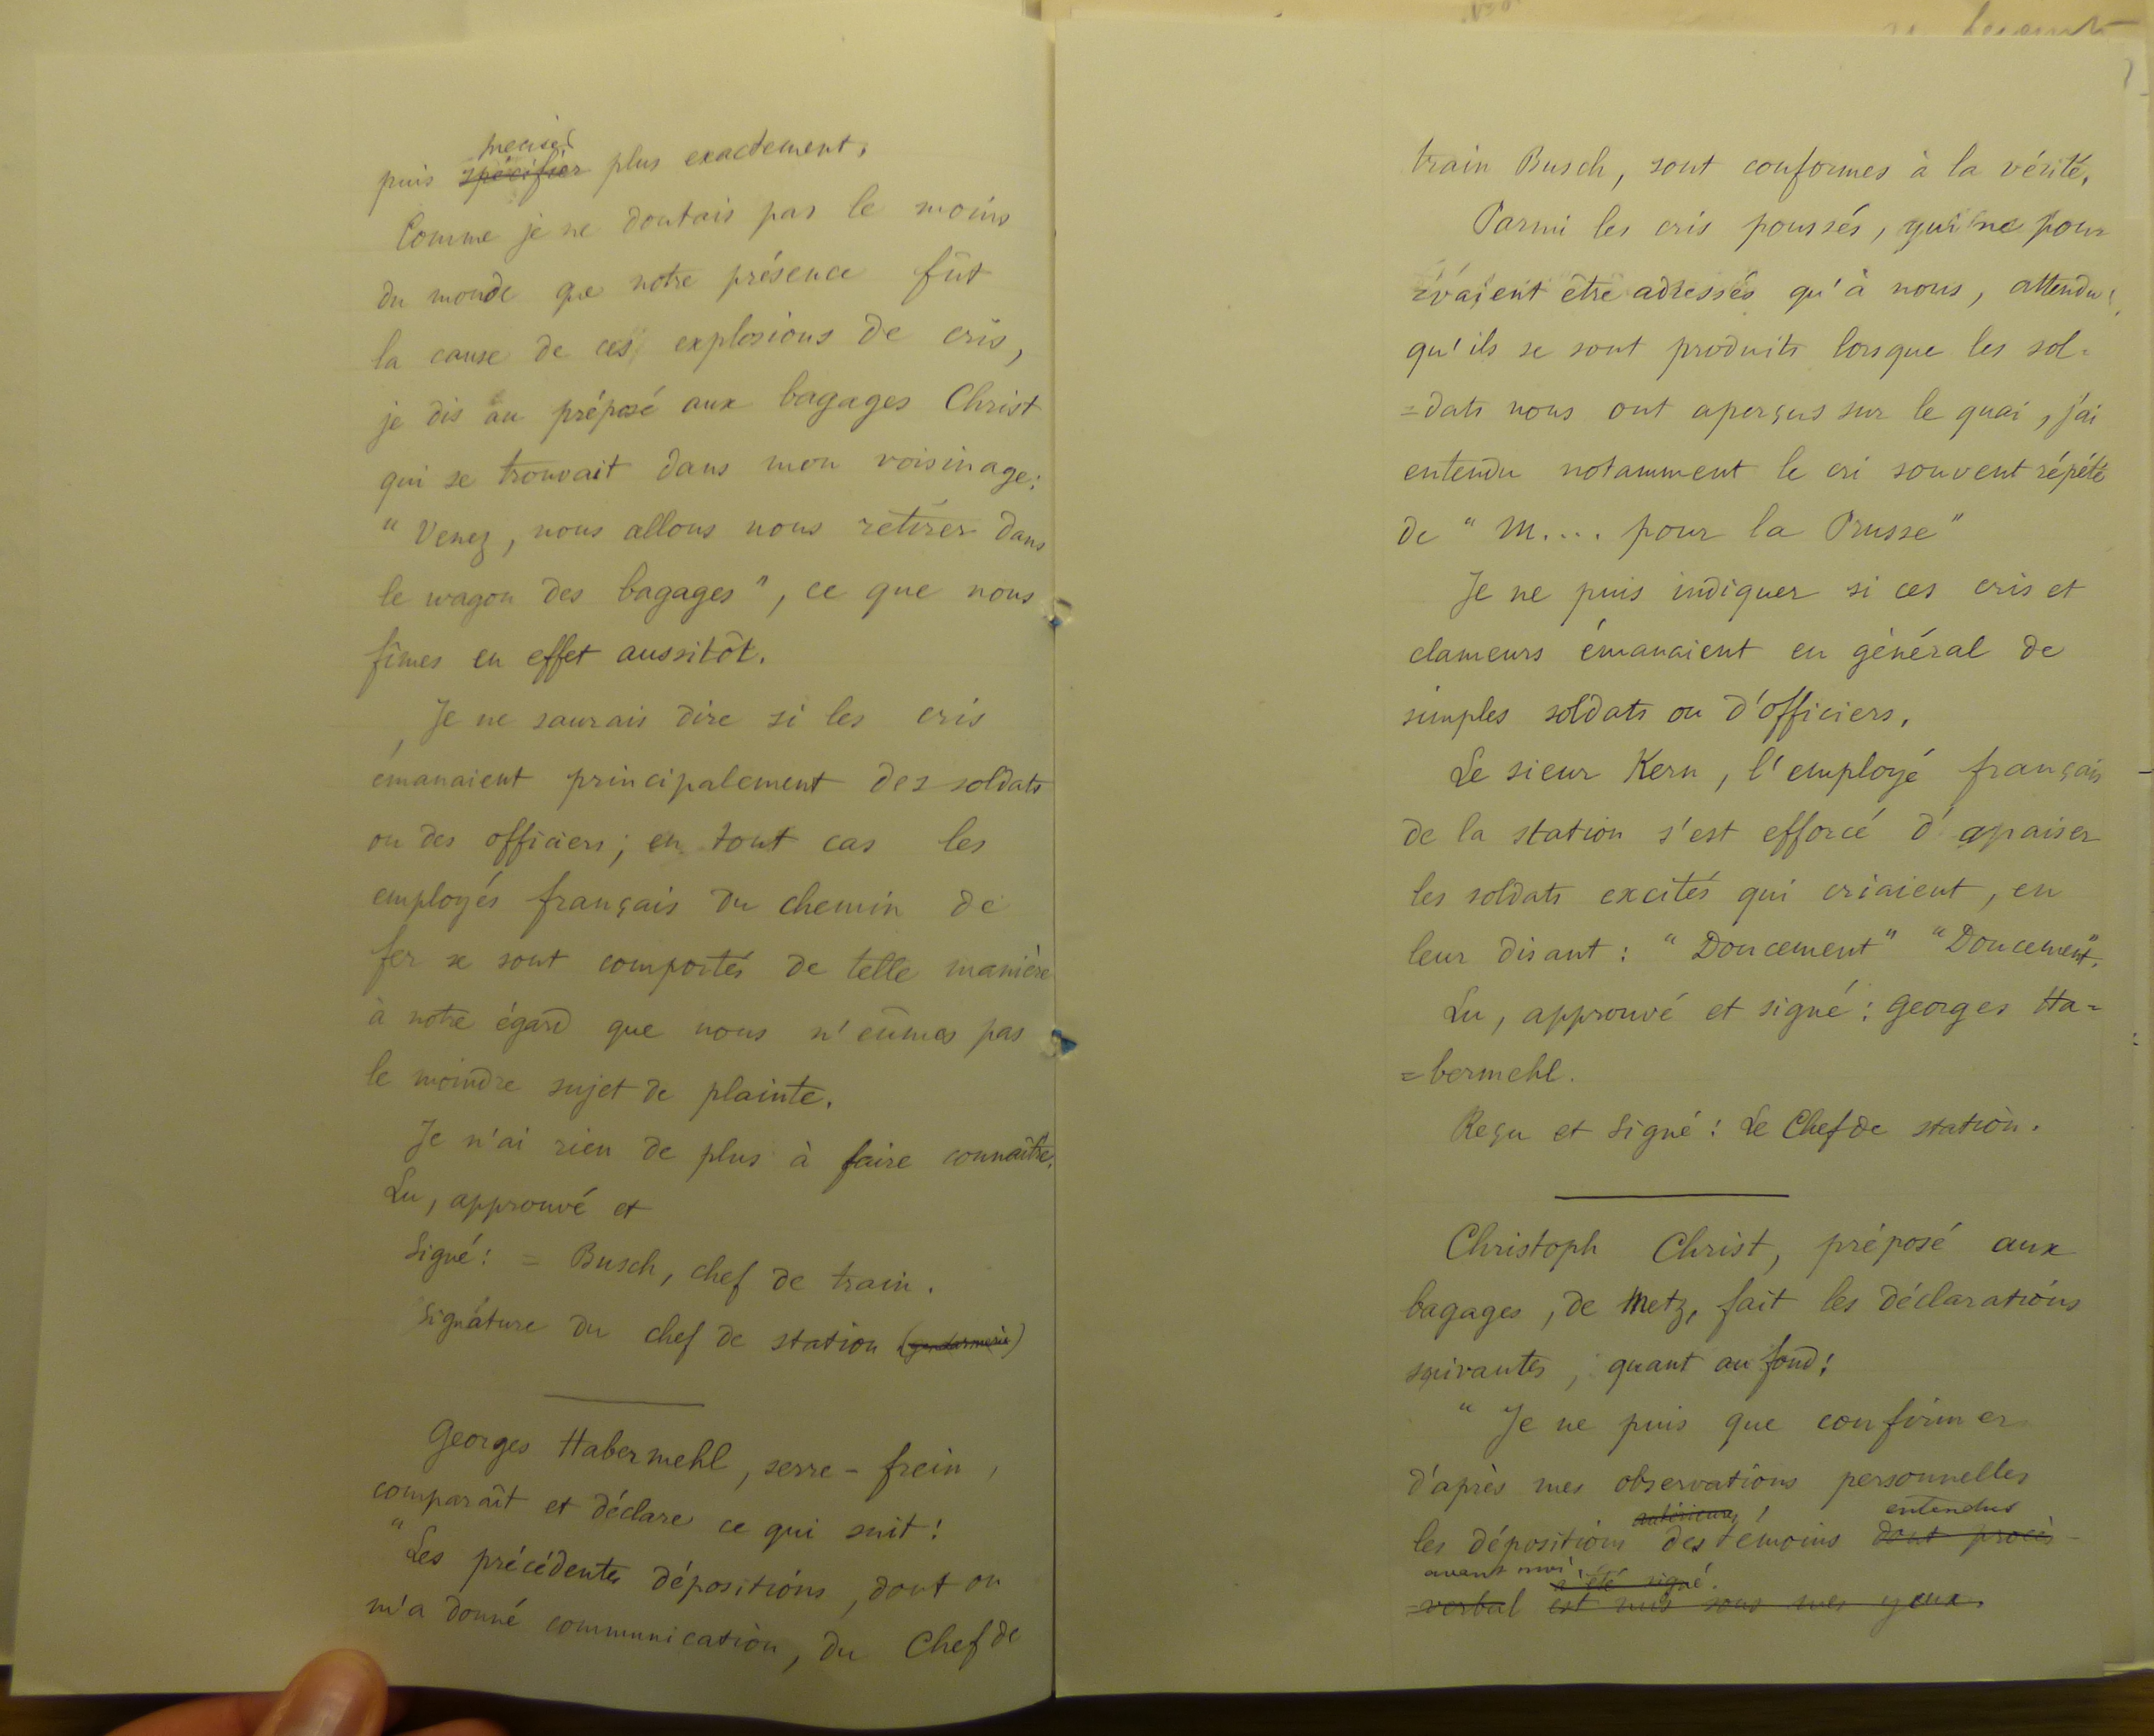 préciser
puis spécifier plus exactement.
Comme je ne doutais pas le moins
du monde que notre présence fût
la cause de ces explosions de cris,
je dis au préposé aux bagages Christ
qui se trouvait dans mon voisinage:
" Venez, nous allons nous retirer dans
le wagon des bagages ", ce que nous
fîmes en effet aussitôt.
Je ne saurais dire si les cris
émanaient principalement des soldats
ou des officiers; en tout cas les
employés français du chemin de
fer se sont comportés de telle manière
à notre égard que nous n'eûmes pas
le moindre sujet de plainte.
Je n'ai rien de plus à faire connaître.
Lu, approuvé et
Signé: = Busch, chef de train.
Signature du chef de station (gendarmerie)
Georges Habermehl, serre-frein,
comparaît et déclare ce qui suit:
" Les précédentes dépositions, dont on
m'a donné communication, du Chef de
train Busch, sont conformes à la vérité.
Parmi les cris poussés, qui ne pour
=vaient être adressés qu'à nous, attendu
qu'ils se sont produits lorsque les sol=
=dats nous ont aperçus sur le quai, j'ai
entendu notamment le cri souvent répété
de " M.... pour la Prusse "
Je ne puis indiquer si ces cris et
clameurs émanaient en général de
simples soldats ou d'officiers.
Le sieur Kern, l'employé français
de la station s'est efforcé d'apaiser
les soldats excités qui criaient, en
leur disant: " Doucement " " Doucement ".
Lu, approuvé et signé: Georges Ha=
=bermehl.
Reçu et Signé: Le Chef de station.
Christoph Christ, préposé aux
bagages, de Metz, fait les déclarations
suivantes, quant au fond:
" Je ne puis que confirmer
d'après mes observations personnelles
entendus
les dépositions des témoins dont procès-
avant moi, a été signé.
=verbal est mis sous mes yeux.